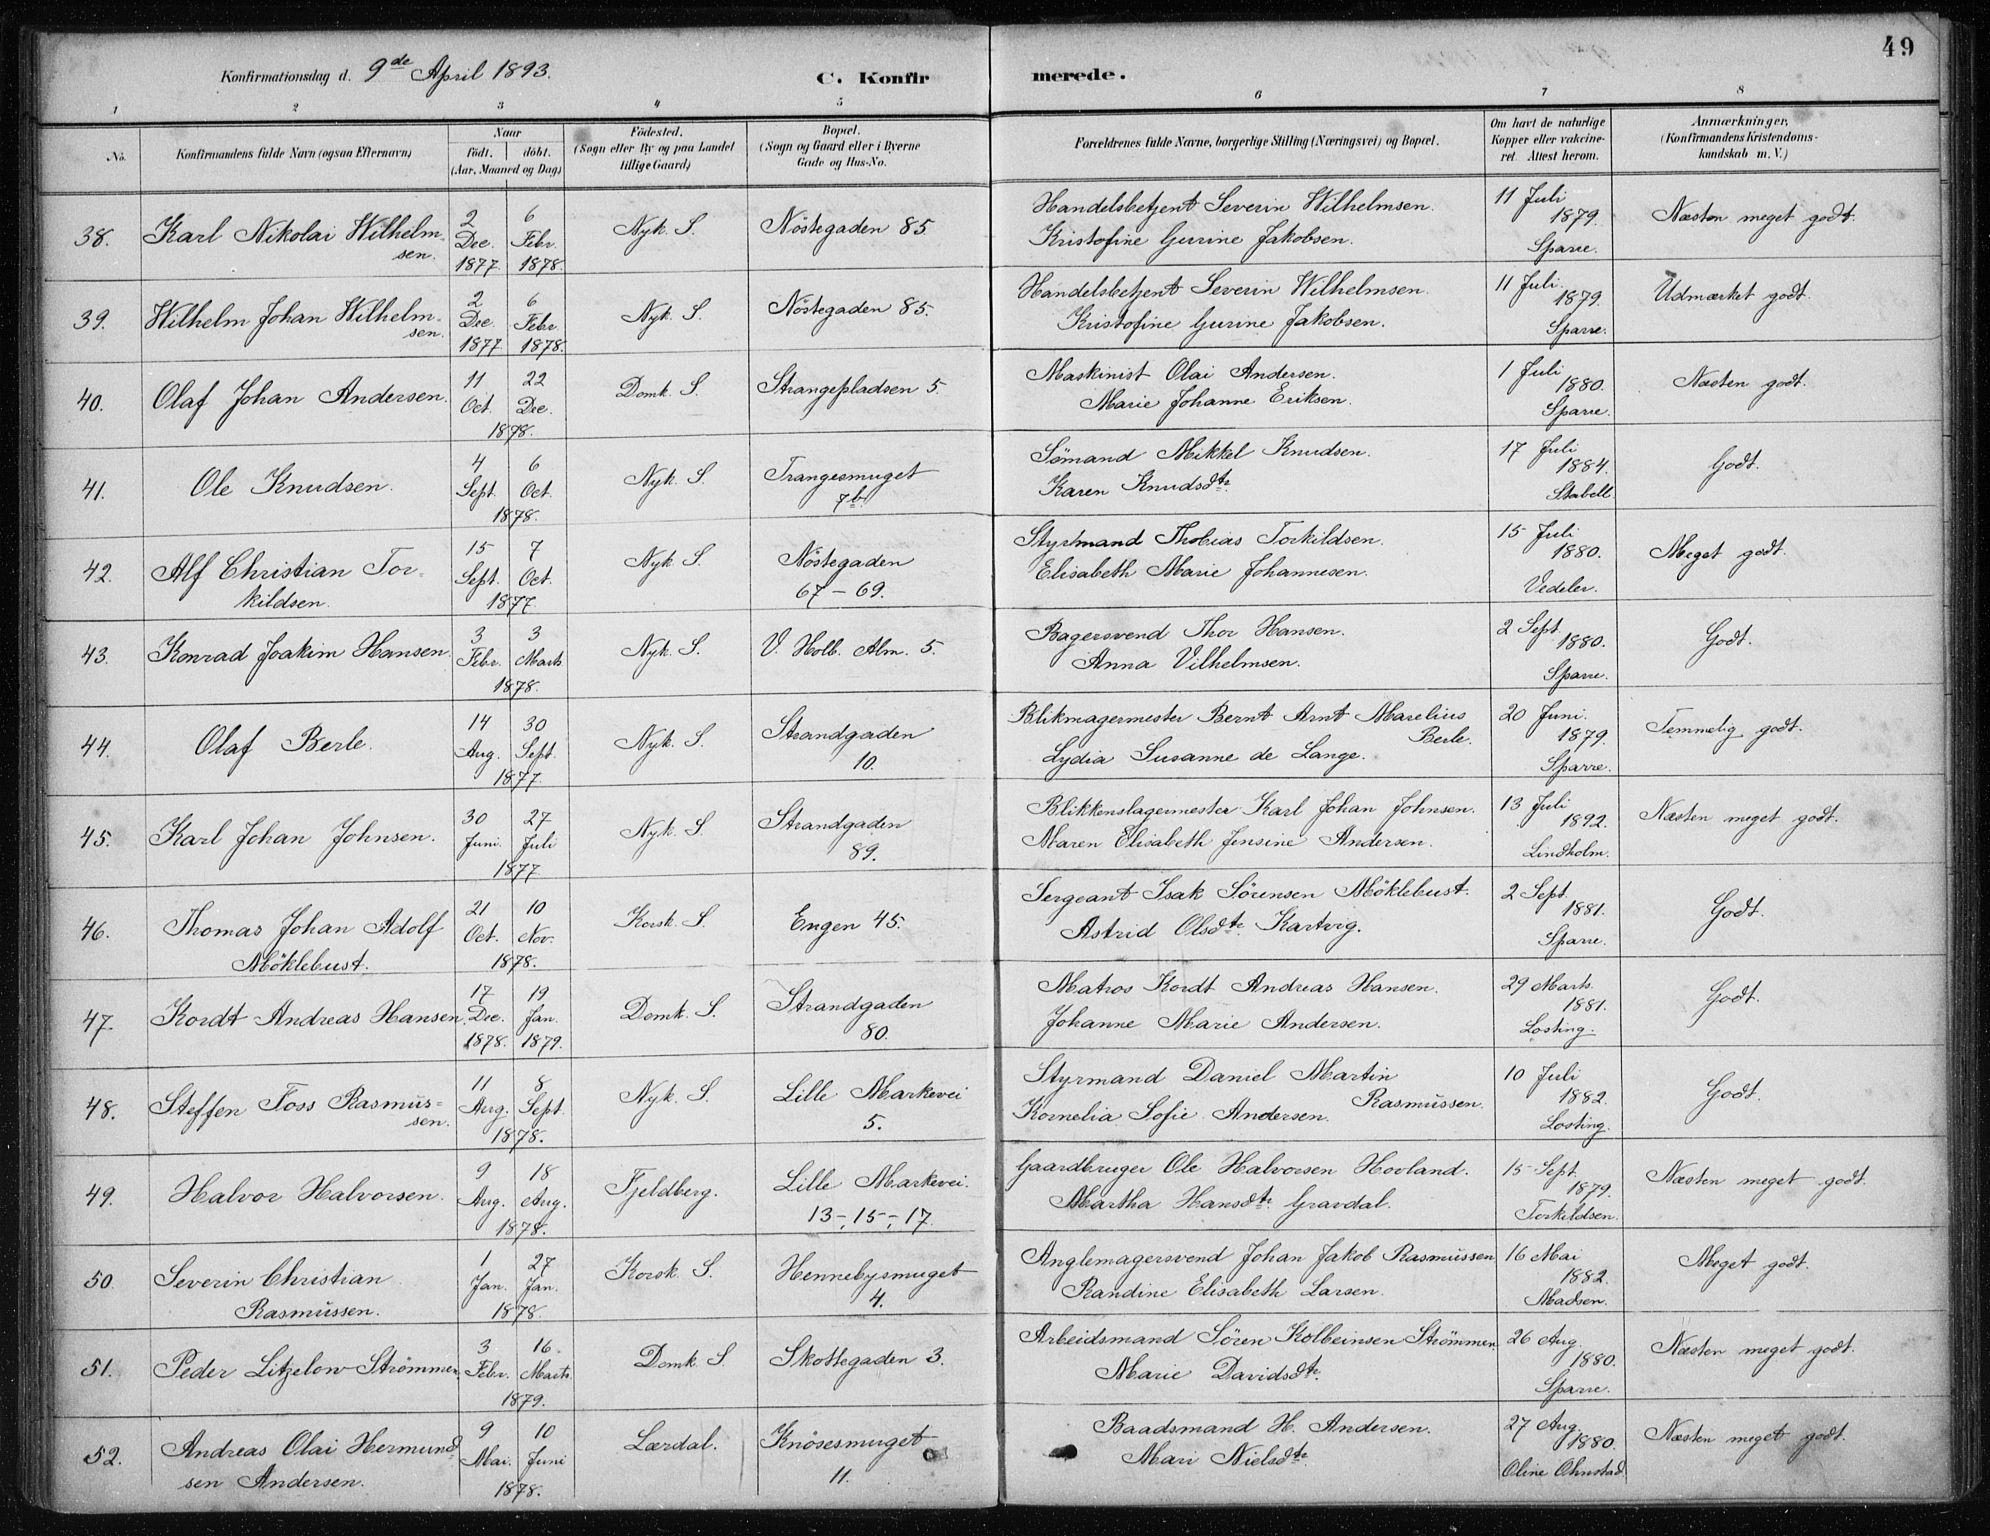 49
Konfirmationsdag d. 9de April 1893.
C. Konfirmerede.
1 2 3 4 5 6 7 8
No.
Konfirmandens fulde Navn (ogsaa Efternavn)
Naar
födt. döbt.
(Aar, Maaned og Dag)
Födested.
(Sogn eller By og paa Landet
tillige Gaard)
Bopæl.
(Sogn og Gaard eller i Byerne
Gade og Hus-No.
Forældrenes fulde Navne, borgerlige Stilling (Næringsvei) og Bopæl.
Om havt de naturlige
Kopper eller vakcine-
ret Attest herom.
Anmærkninger,
(Konfirmandens Kristendoms-
kundskab m. V.)
38. Karl Nikolai Wilhelm-
sen.
2 Dec. 1877 6 Febr. 1878.
Nyk. S.
Nöstegaden 85
Handelsbetjent Severin Wilhelmsen.
Kristofine Gurine Jakobsen.
11 Juli 1879. Sparre.
Næsten meget godt.
39. Wilhelm Johan Wilhelm-
sen.
2 Dec. 1877 6 Febr. 1878.
Nyk. S.
Nöstegaden 85.
Handelsbetjent Severin Wilhelmsen.
Kristofine Gurine Jakobsen.
11 Juli 1879. Sparre.
Udmærket godt.
40. Olaf Johan Andersen.
11 Oct. 22 Dec. 1878.
Domk. S.
Strangepladsen 5.
Maskinist Olai Andersen.
Marie Johanne Eriksen.
1 Juli 1880. Sparre.
Næsten godt.
41. Ole Knudsen.
4 Sept. 6 Oct. 1878.
Nyk. S.
Trangesmuget
7b.
Sömand Mikkel Knudsen.
Karen Knudsdtr.
17 Juli 1884. Stabell.
Godt.
42. Alf Christian Tor-
kildsen.
15 Sept. 7 Oct. 1877
Nyk. S.
Nöstegaden
67 - 69.
Styrmand Thobias Torkildsen.
Elisabeth Marie Johannesen.
15 Juli 1880. Vedeler.
Meget godt.
43. Konrad Joakim Hansen.
3 Febr. 3 Marts 1878.
Nyk. S.
V. Holb. Alm. 5.
Bagersvend Thor Hansen.
Anna Vilhelmsen.
2 Sept. 1880. Sparre.
Godt.
44. Olaf Berle.
14 Aug. 30 Sept. 1877.
Nyk. S.
Strandgaden
10.
Blikmagermester Bernt Arnt Marelius
Berle.
Lydia Susanne de Lange.
20 Juni. 1879. Sparre.
Temmelig godt.
45. Karl Johan Johnsen.
30 Juni. 27 Juli 1877
Nyk. S.
Strandgaden
89.
Blikkenslagermester Karl Johan Johnsen.
Maren Elisabeth Jensine Andersen.
13 Juli 1892. Lindholm.
Næsten meget godt.
46. Thomas Johan Adolf
Möklebust.
21 Oct. 10 Nov. 1878.
Korsk. S.
Engen 45.
Sergeant Isak Sörensen Möklebust.
Astrid Olsdtr. Kartvig.
2 Sept. 1881. Sparre.
Godt.
47. Kordt Andreas Hansen.
17 Dec. 1878. 19 Jan. 1879.
Domk. S.
Strandgaden
80.
Matros Kordt Andreas Hansen.
Johanne Marie Andersen.
29 Marts. 1881. Losting.
Godt.
48. Steffen Foss Rasmus-
sen.
11 Aug. 8 Sept. 1878.
Nyk. S.
Lille Markevei
5.
Styrmand Daniel Martin
Rasmussen.
Kornelia Sofie Andersen.
10 Juli 1882. Losting.
Godt.
49. Halvor Halvorsen.
9 Aug. 18 Aug. 1878.
Fjeldberg.
Lille Markevei.
13-, 15-, 17.
Gaardbruger Ole Halvorsen Hovland.
Martha Hansdtr. Gravdal.
15 Sept. 1879. Torkildsen.
Næsten meget godt.
50. Severin Christian
Rasmussen.
1 Jan. 27 Jan. 1878.
Korsk. S.
Hennebysmuget
4.
Anglemagersvend Johan Jakob Rasmussen
Randine Elisabeth Larsen.
16 Mai 1882. Madsen.
Meget godt.
51. Peder Litzelow Strömmen.
3 Febr. 16. Marts. 1879.
Domk. S.
Skottegaden 3.
Arbeidsmand Sören Kolbeinsen Strömmen.
Marie Davidsdtr.
26 Aug. 1880. Sparre.
Næsten meget godt.
52. Andreas Olai Hermund
sen Andersen.
9 Mai. 10 Juni 1878.
Lærdal.
Knösesmuget
11.
Baadsmand H. Andersen.
Mari Nielsdtr.
27 Aug. 1880. Oline Ohnstad.
Næsten meget godt.